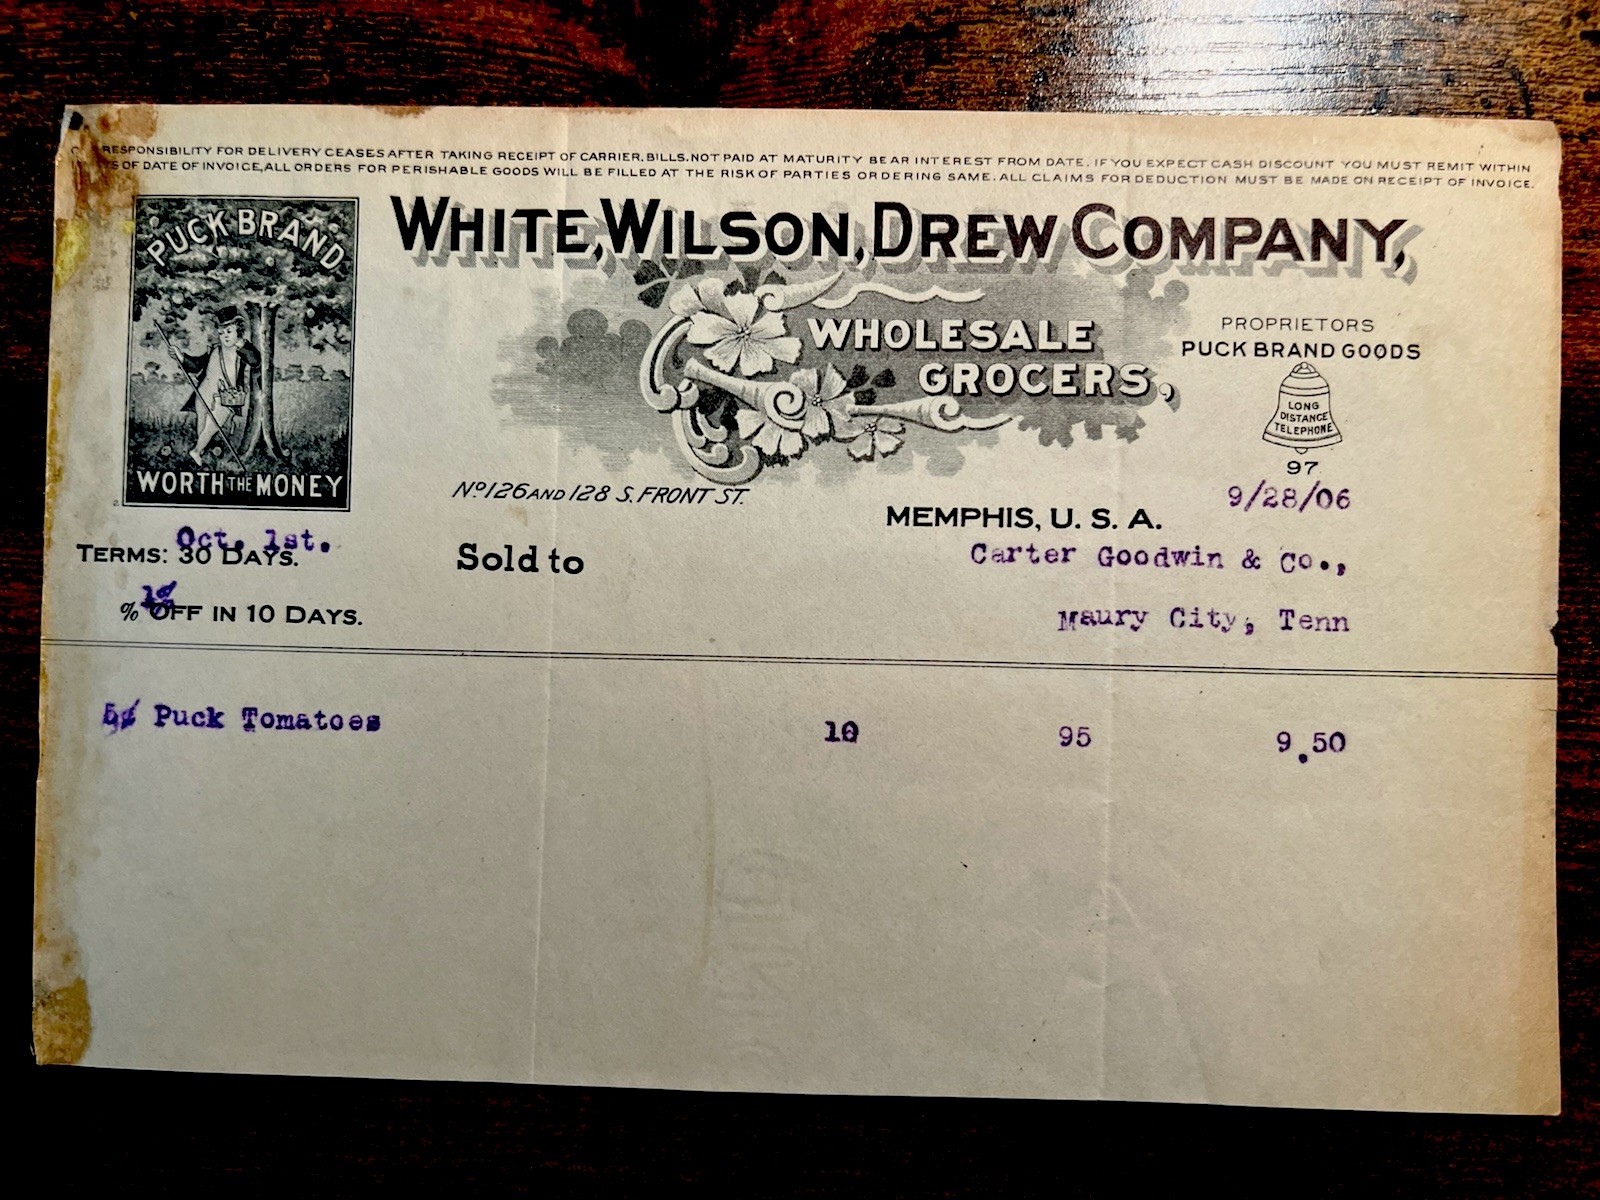 RESPONSIBILITY FOR DELIVERY CEASES AFTER TAKING RECEIPT OF CARRIER. BILLS. NOT PAID AT MATURITY BEAR INTEREST FROM DATE. IF YOU EXPECT CASH DISCOUNT YOU MUST REMIT WITHIN
OF DATE OF INVOICE, ALL ORDERS FOR PERISHABLE GOODS WILL BE FILLED AT THE RISK OF PARTIES ORDERING SAME. ALL CLAIMS FOR DEDUCTION MUST BE MADE ON RECEIPT OF INVOICE.
PUCK BRAND
WORTH THE MONEY
WHITE, WILSON, DREW COMPANY,
WHOLESALE
GROCERS,
PROPRIETORS
PUCK BRAND GOODS
LONG
DISTANCE
TELEPHONE
97
No 126 AND 128 S. FRONT ST.
MEMPHIS, U. S. A.
9/28/06
Oct. 1st.
TERMS: 30 DAYS.
% OFF IN 10 DAYS.
Sold to
Carter Goodwin & Co.,
Maury City, Tenn
Puck Tomatoes 10 95 9.50